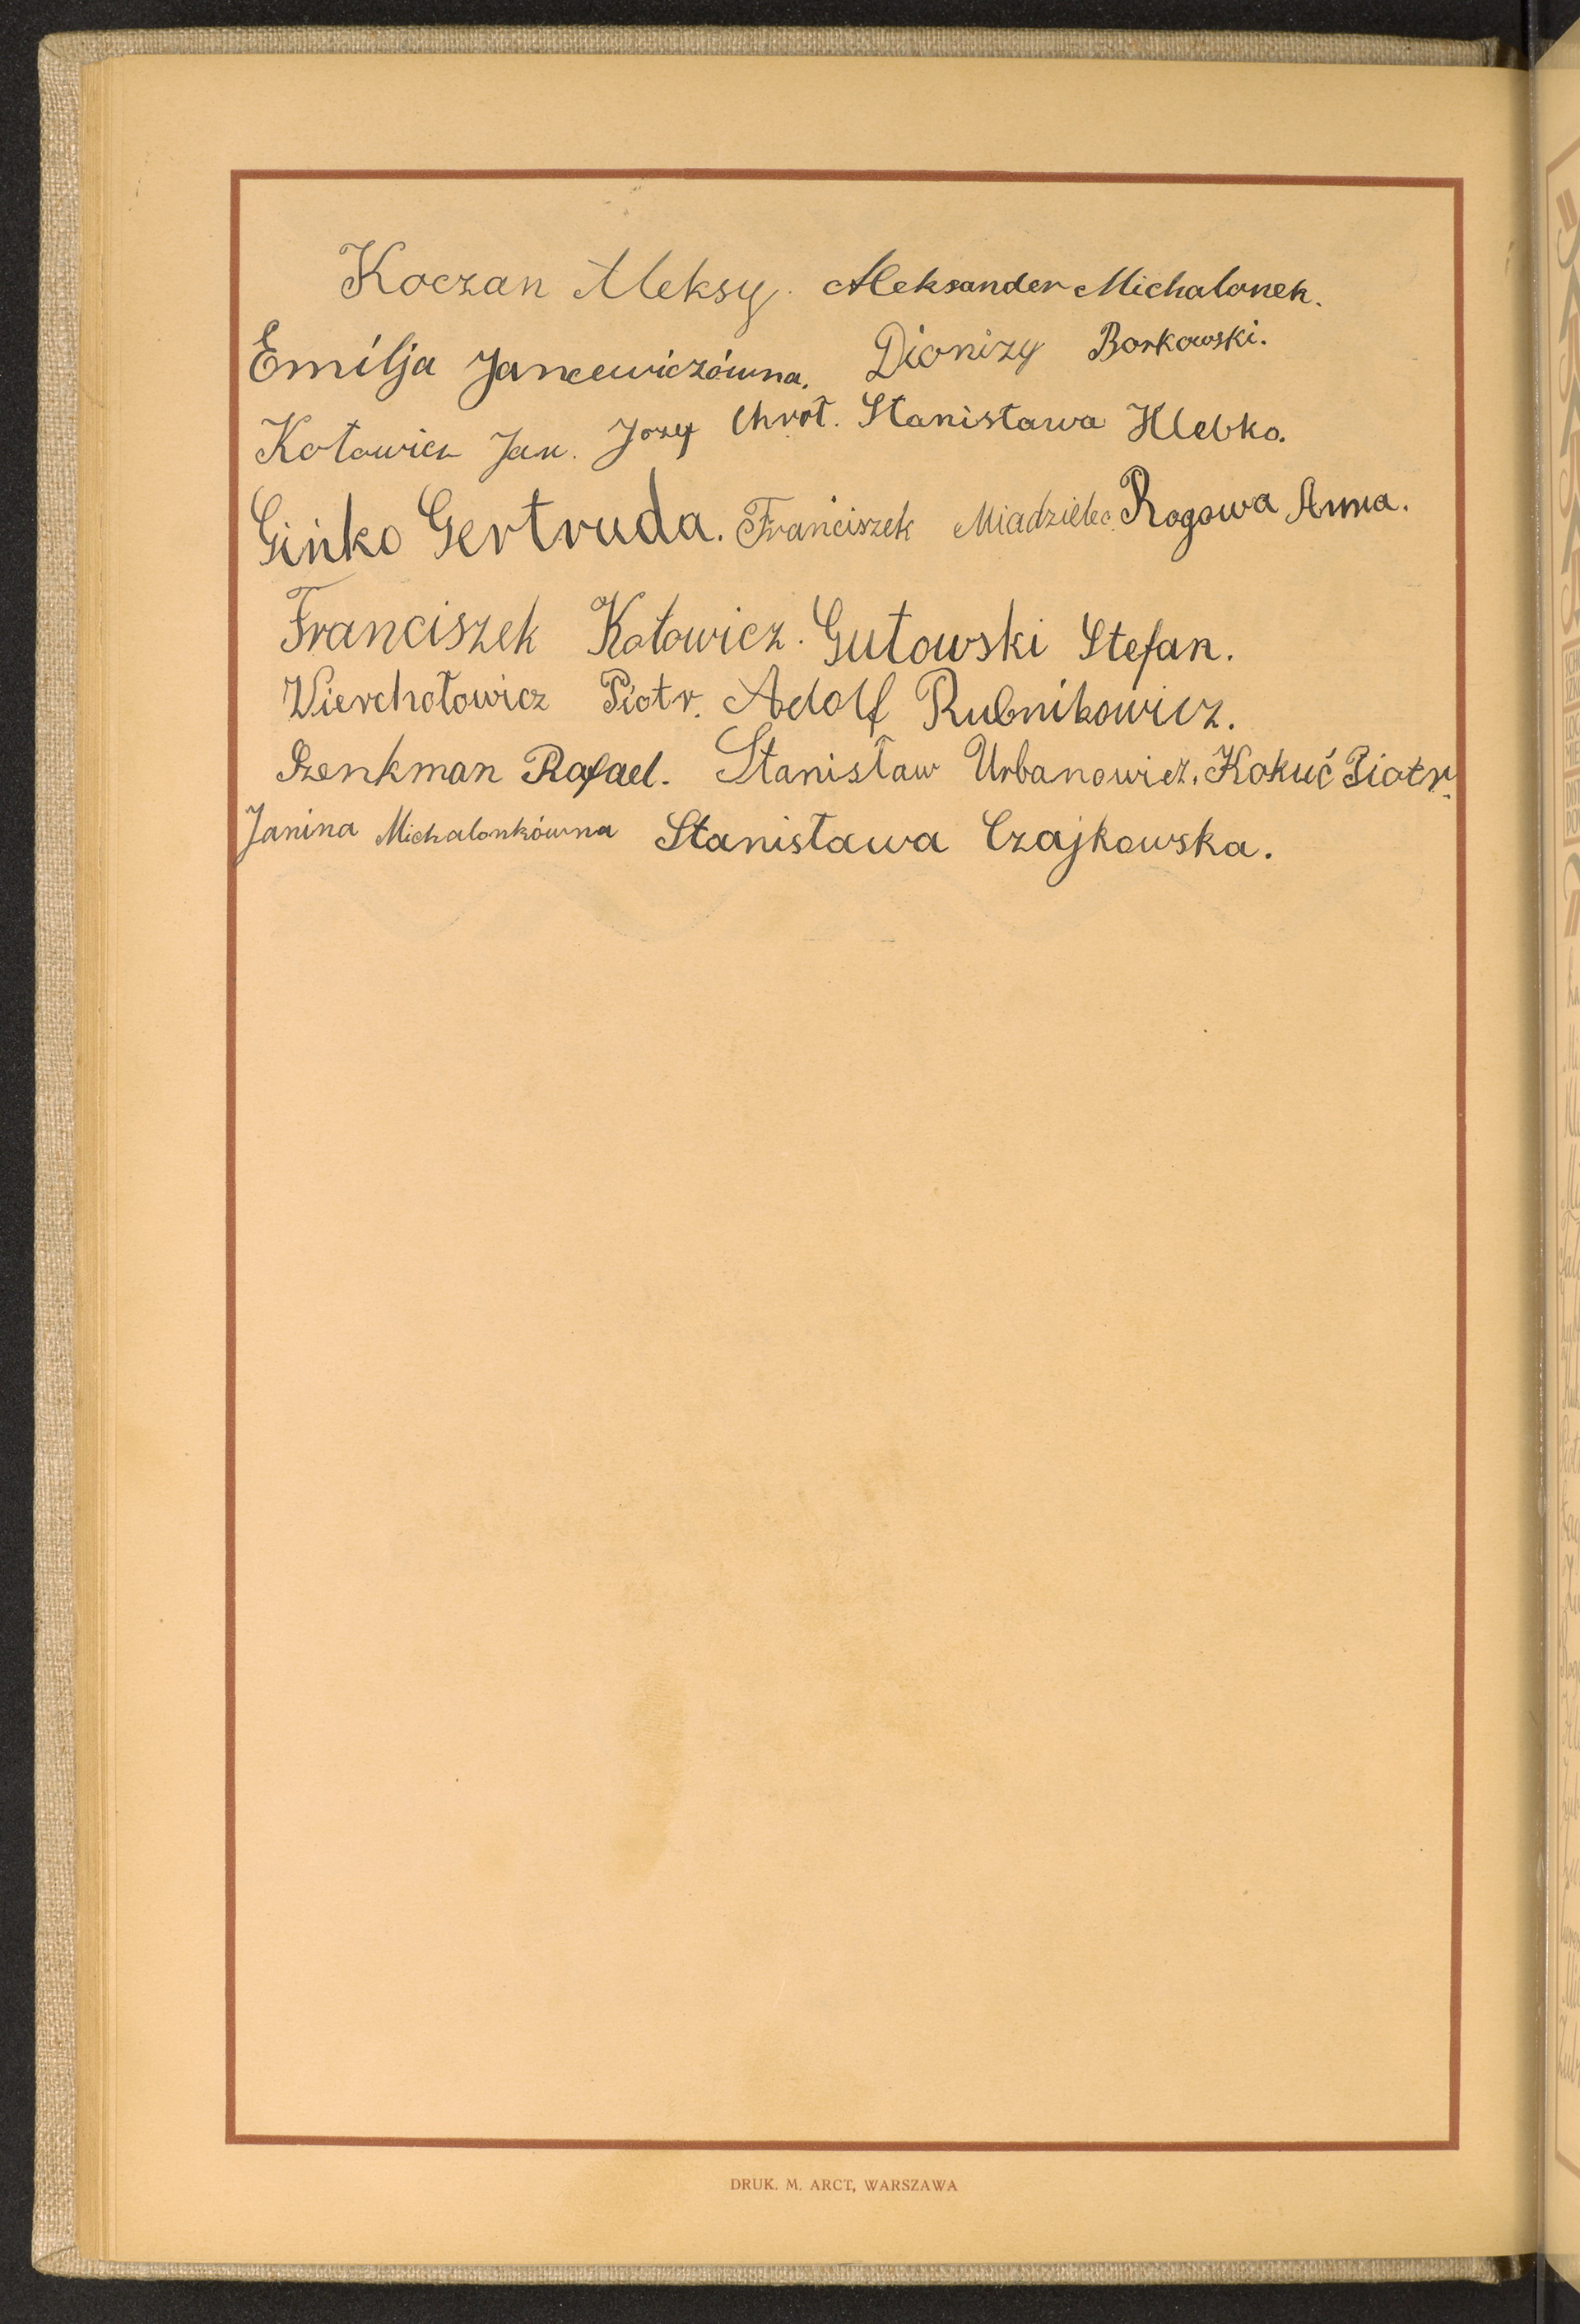 Koczan Aleksy. Aleksander Michalonek.
Emilja Jancewiczówna. Dionizy Borkowski.
Kotowicz Jan. Jozef Chrōt. Stanisława Hlebko.
Gińko Gertruda. Franciszek Miadzielec Rogowa Anna.
Franciszek Kotowicz. Gutowski Stefan.
Wierchołowicz Piotr. Adolf Rubnikowicz.
Szenkman Rafael. Stanisław Urbanowicz. Kokuć Piotr.
Janina Michalonkówna Stanisława Czajkowska.
DRUK. M. ARCT, WARSZAWA